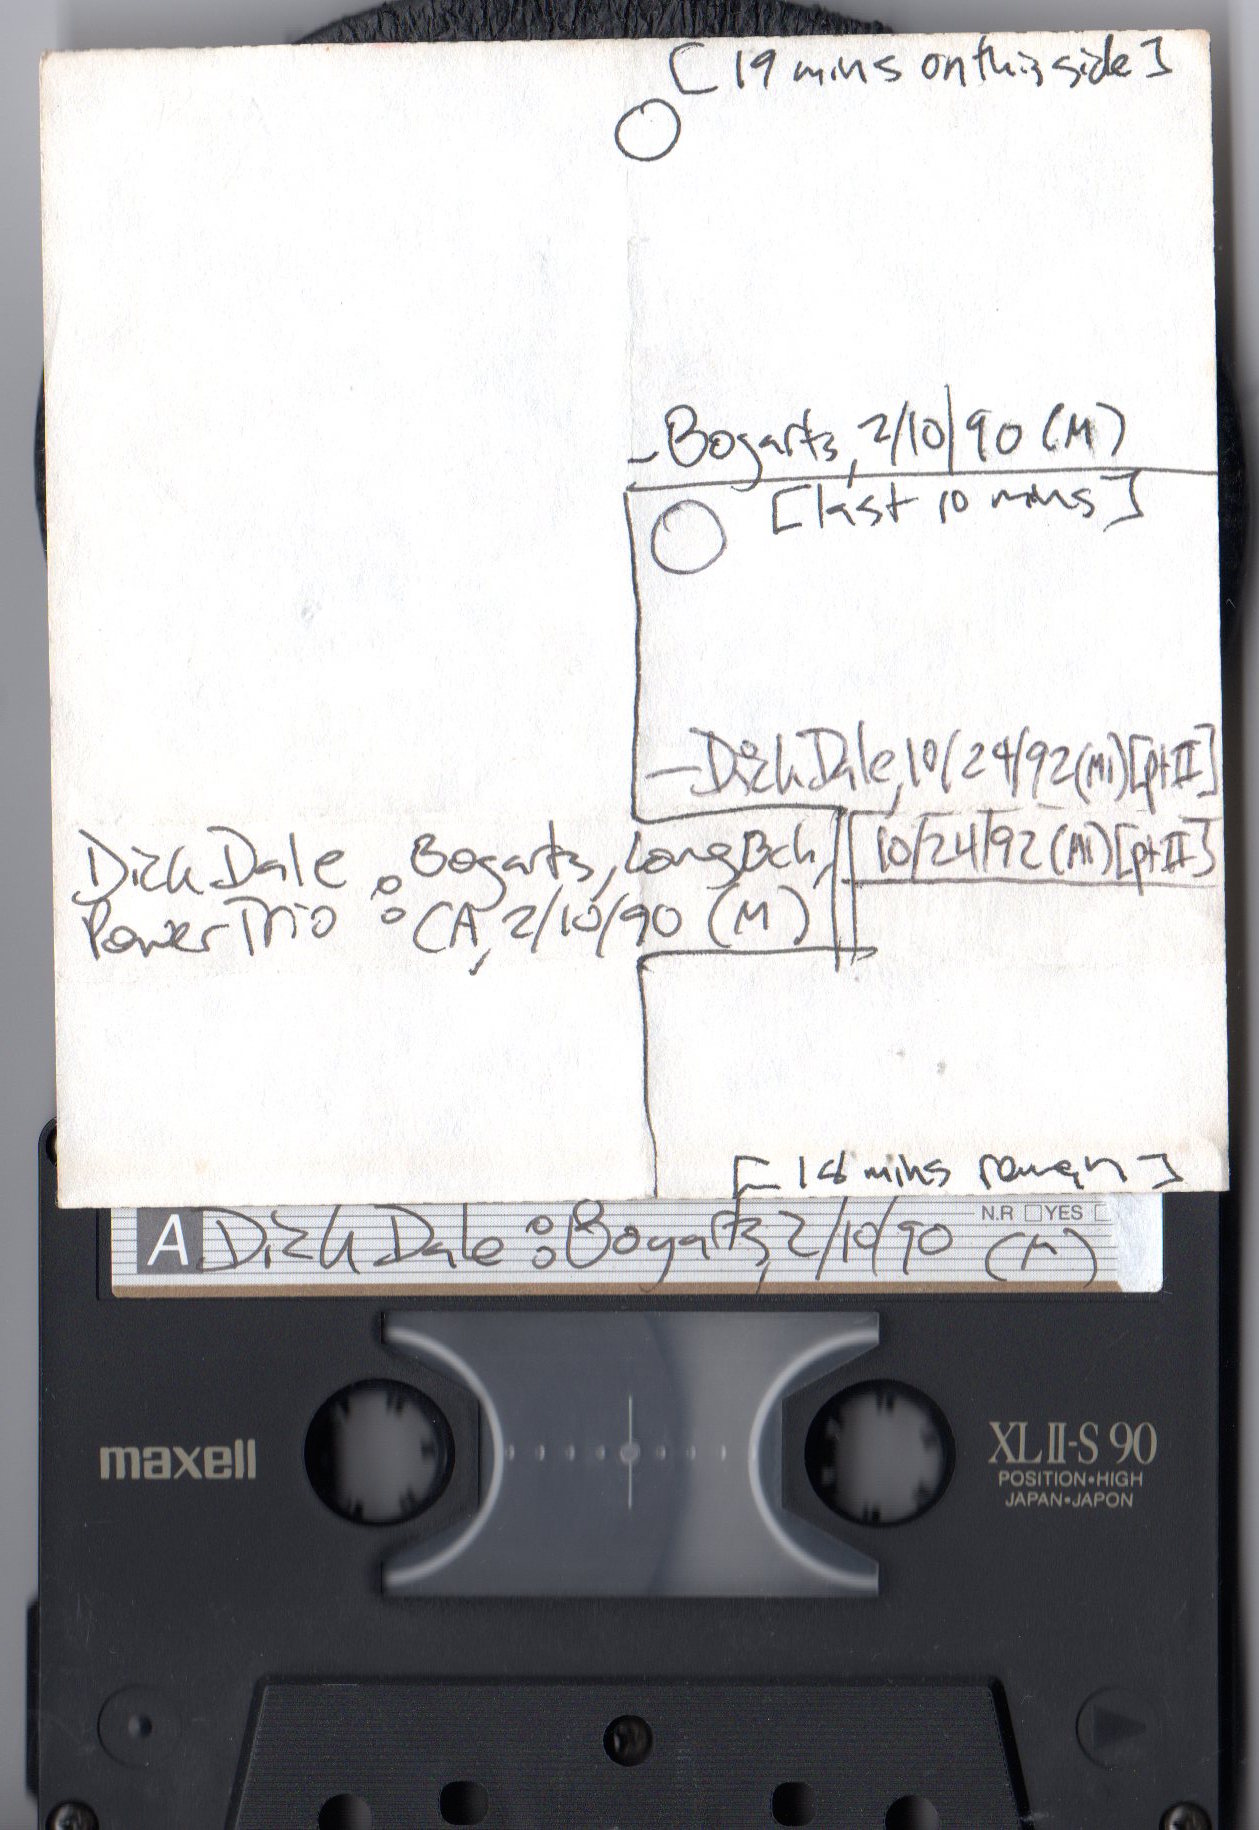 [19 mins on this side]
- Bogarts, 2/10/90 (M)
[last 10 mins]
- Dick Dale, 10/24/92 (M1) [pt II]
Dick Dale : Bogarts, Long Bch, 10/24/92 (M1) [pt II]
Power Trio : CA, 2/10/90 (M)
[18 mins remain]
N.R YES
A Dick Dale : Bogarts, 2/10/90 (M)
maxell
XLII-S 90
POSITION•HIGH
JAPAN•JAPON